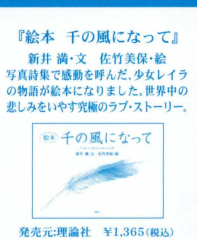 『絵本 千の風になって』
新井 満・文 佐竹美保・絵
写真詩集で感動を呼んだ、少女レイラ
の物語が絵本になりました。世界中の
悲しみをいやす究極のラブ・ストーリー。
絵本 千の風になって
新井 満 文 佐竹美保 絵
発売元:理論社 ¥1,365(税込)